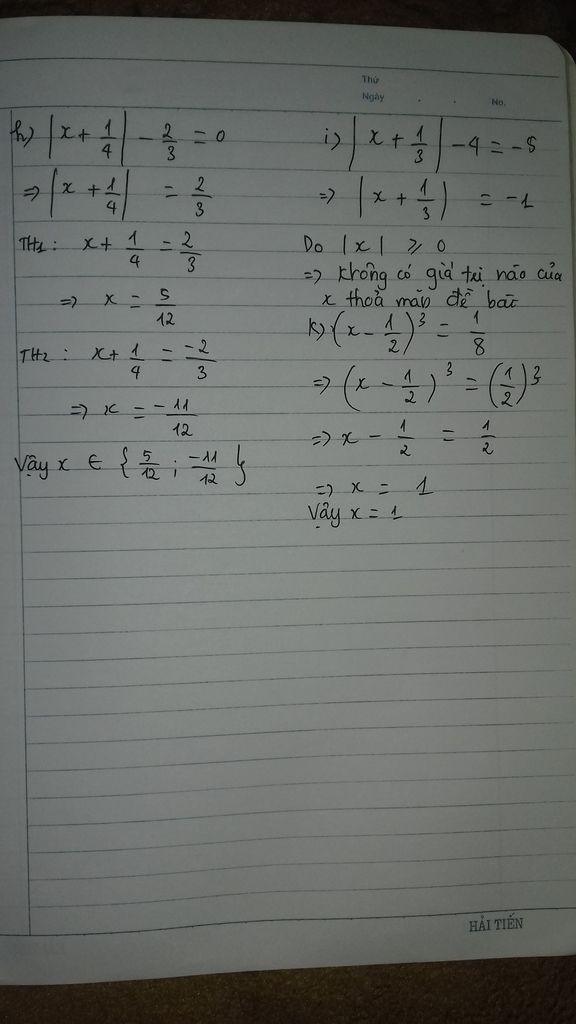 Thứ
Ngày . . No.
h) |x + 1/4| - 2/3 = 0
=> |x + 1/4| = 2/3
TH1: x + 1/4 = 2/3
=> x = 5/12
TH2: x + 1/4 = -2/3
=> x = -11/12
Vậy x ∈ {5/12 ; -11/12}
i) |x + 1/3| - 4 = -5
=> |x + 1/3| = -1
Do |x| ⩾ 0
=> không có giá trị nào của
x thoả mãn đề bài
k) (x - 1/2)³ = 1/8
=> (x - 1/2)³ = (1/2)³
=> x - 1/2 = 1/2
=> x = 1
Vậy x = 1
HẢI TIẾN